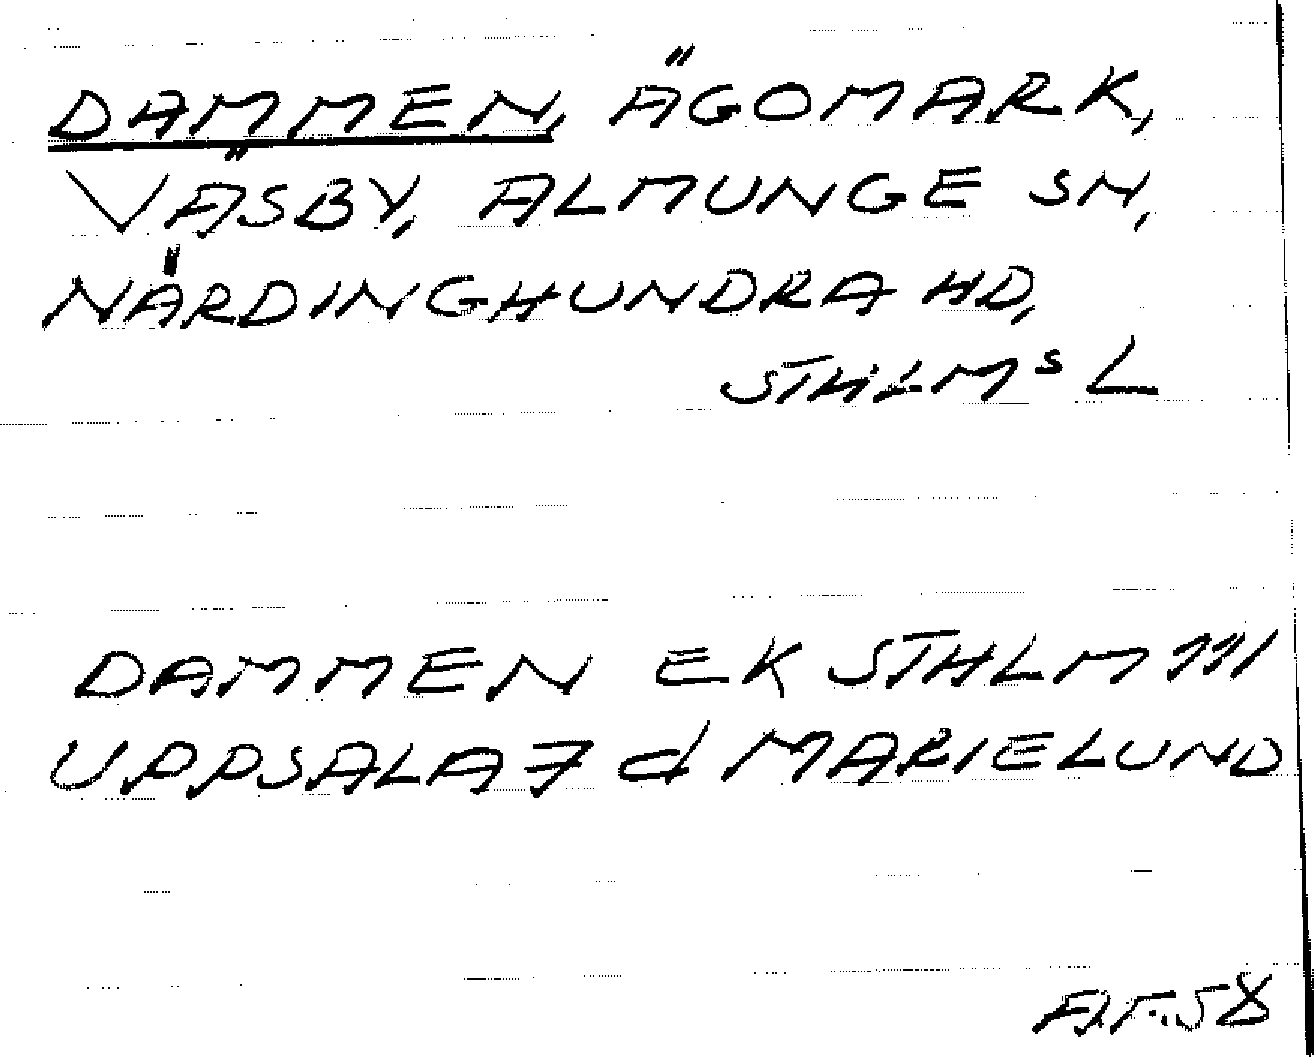 DAMMEN, ÄGOMARK,
VÄSBY, ALMUNGE SN,
NÄRDINGHUNDRA HD,
STHLMS L
DAMMEN EK STHLM 111
UPPSALA 7 d MARIELUND